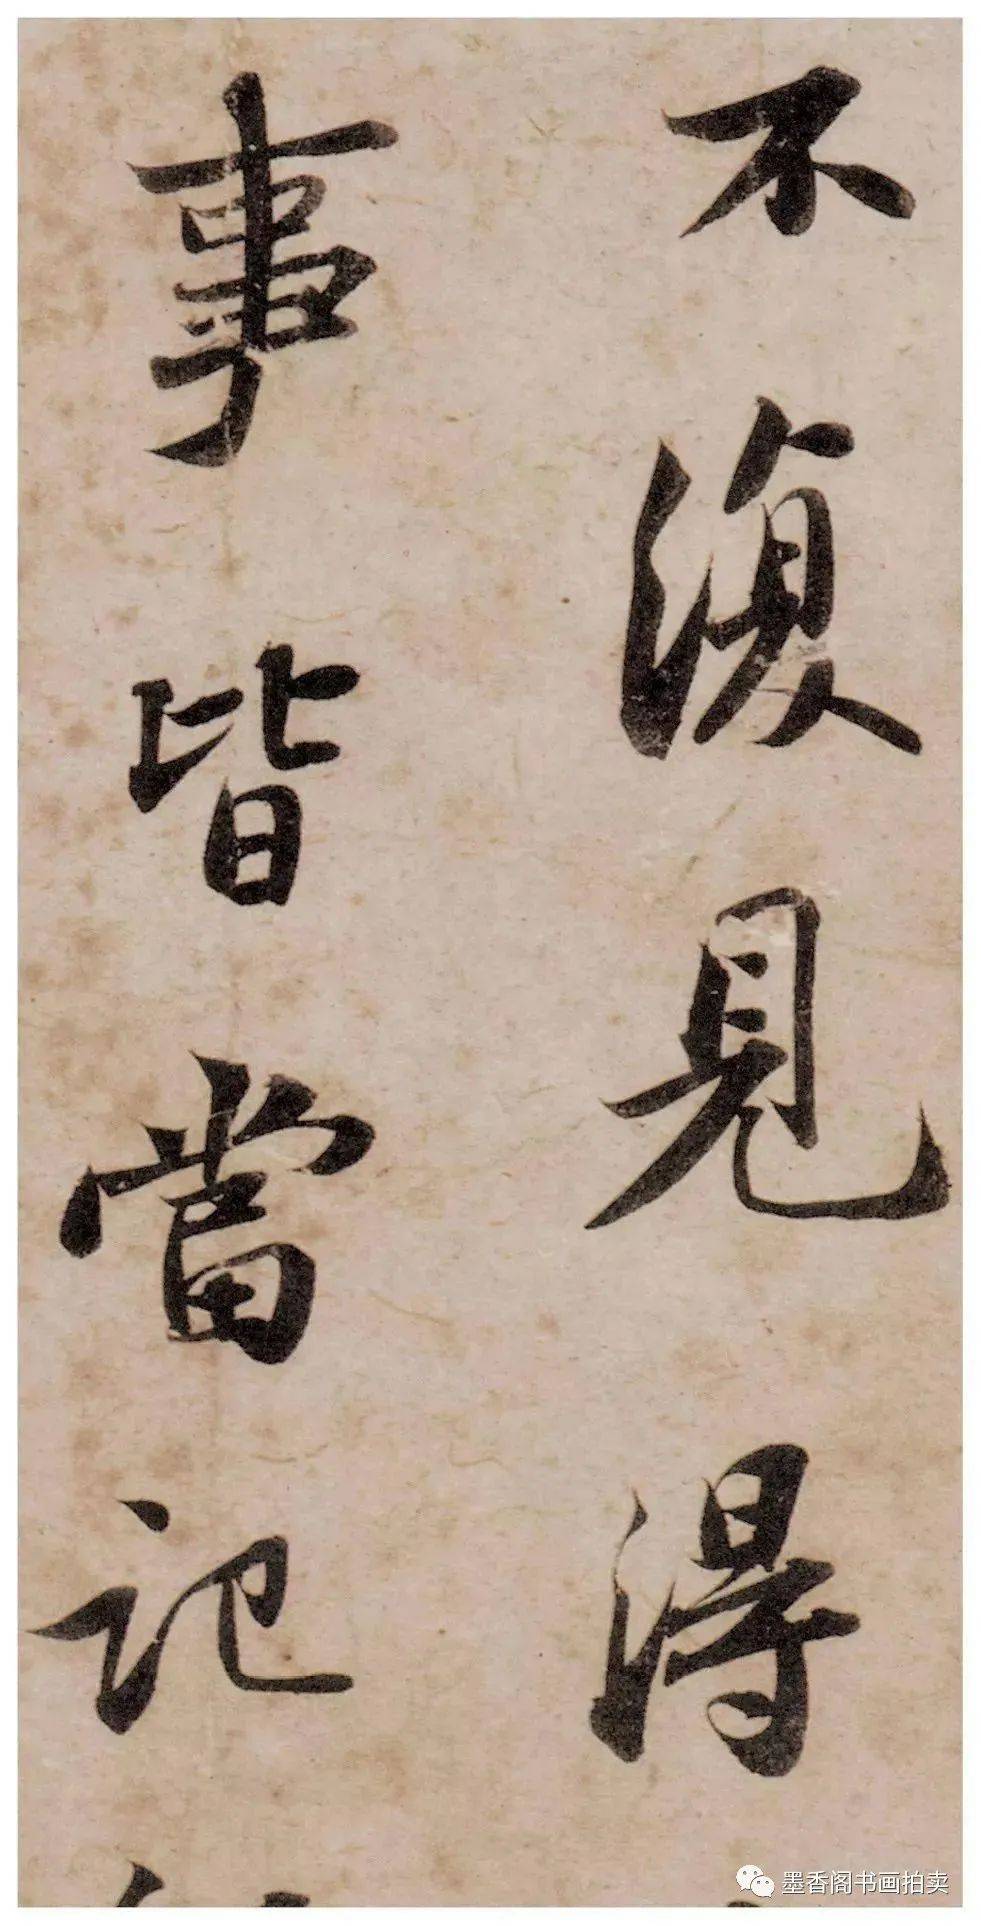 不復見得
事皆當記
墨香阁书画拍卖